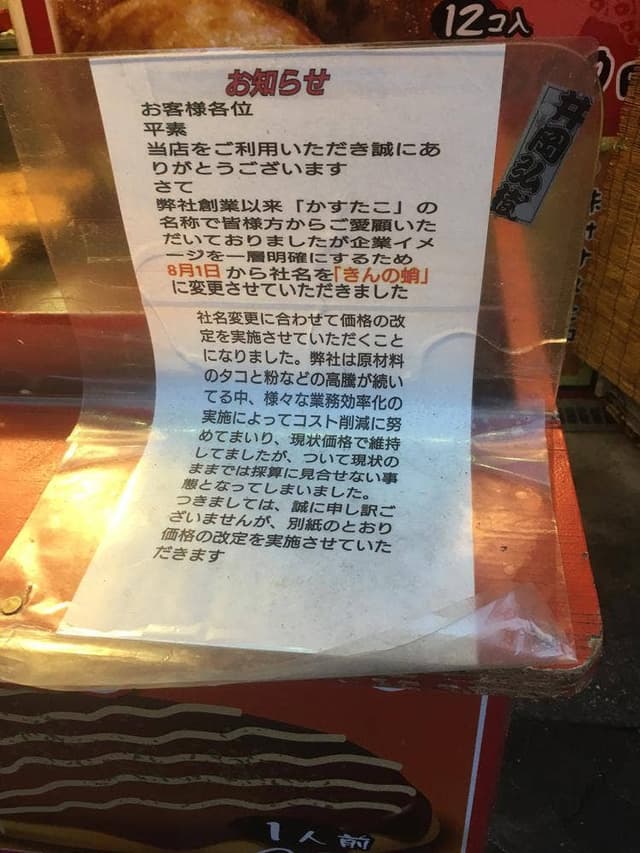 12コ入
お知らせ
お客様各位
平素
当店をご利用いただき誠にあ
りがとうございます
さて
弊社創業以来「かすたこ」の
名称で皆様方からご愛顧いた
だいておりましたが企業イメ
ージを一層明確にするため
8月1日から社名を「きんの蛸」
に変更させていただきました
社名変更に合わせて価格の改
定を実施させていただくこと
になりました。弊社は原材料
のタコと粉などの高騰が続い
てる中、様々な業務効率化の
実施によってコスト削減に努
めてまいり、現状価格で維持
してましたが、ついて現状の
ままでは採算に見合せない事
態となってしまいました。
つきましては、誠に申し訳ご
ざいませんが、別紙のとおり
価格の改定を実施させていた
だきます
1人前